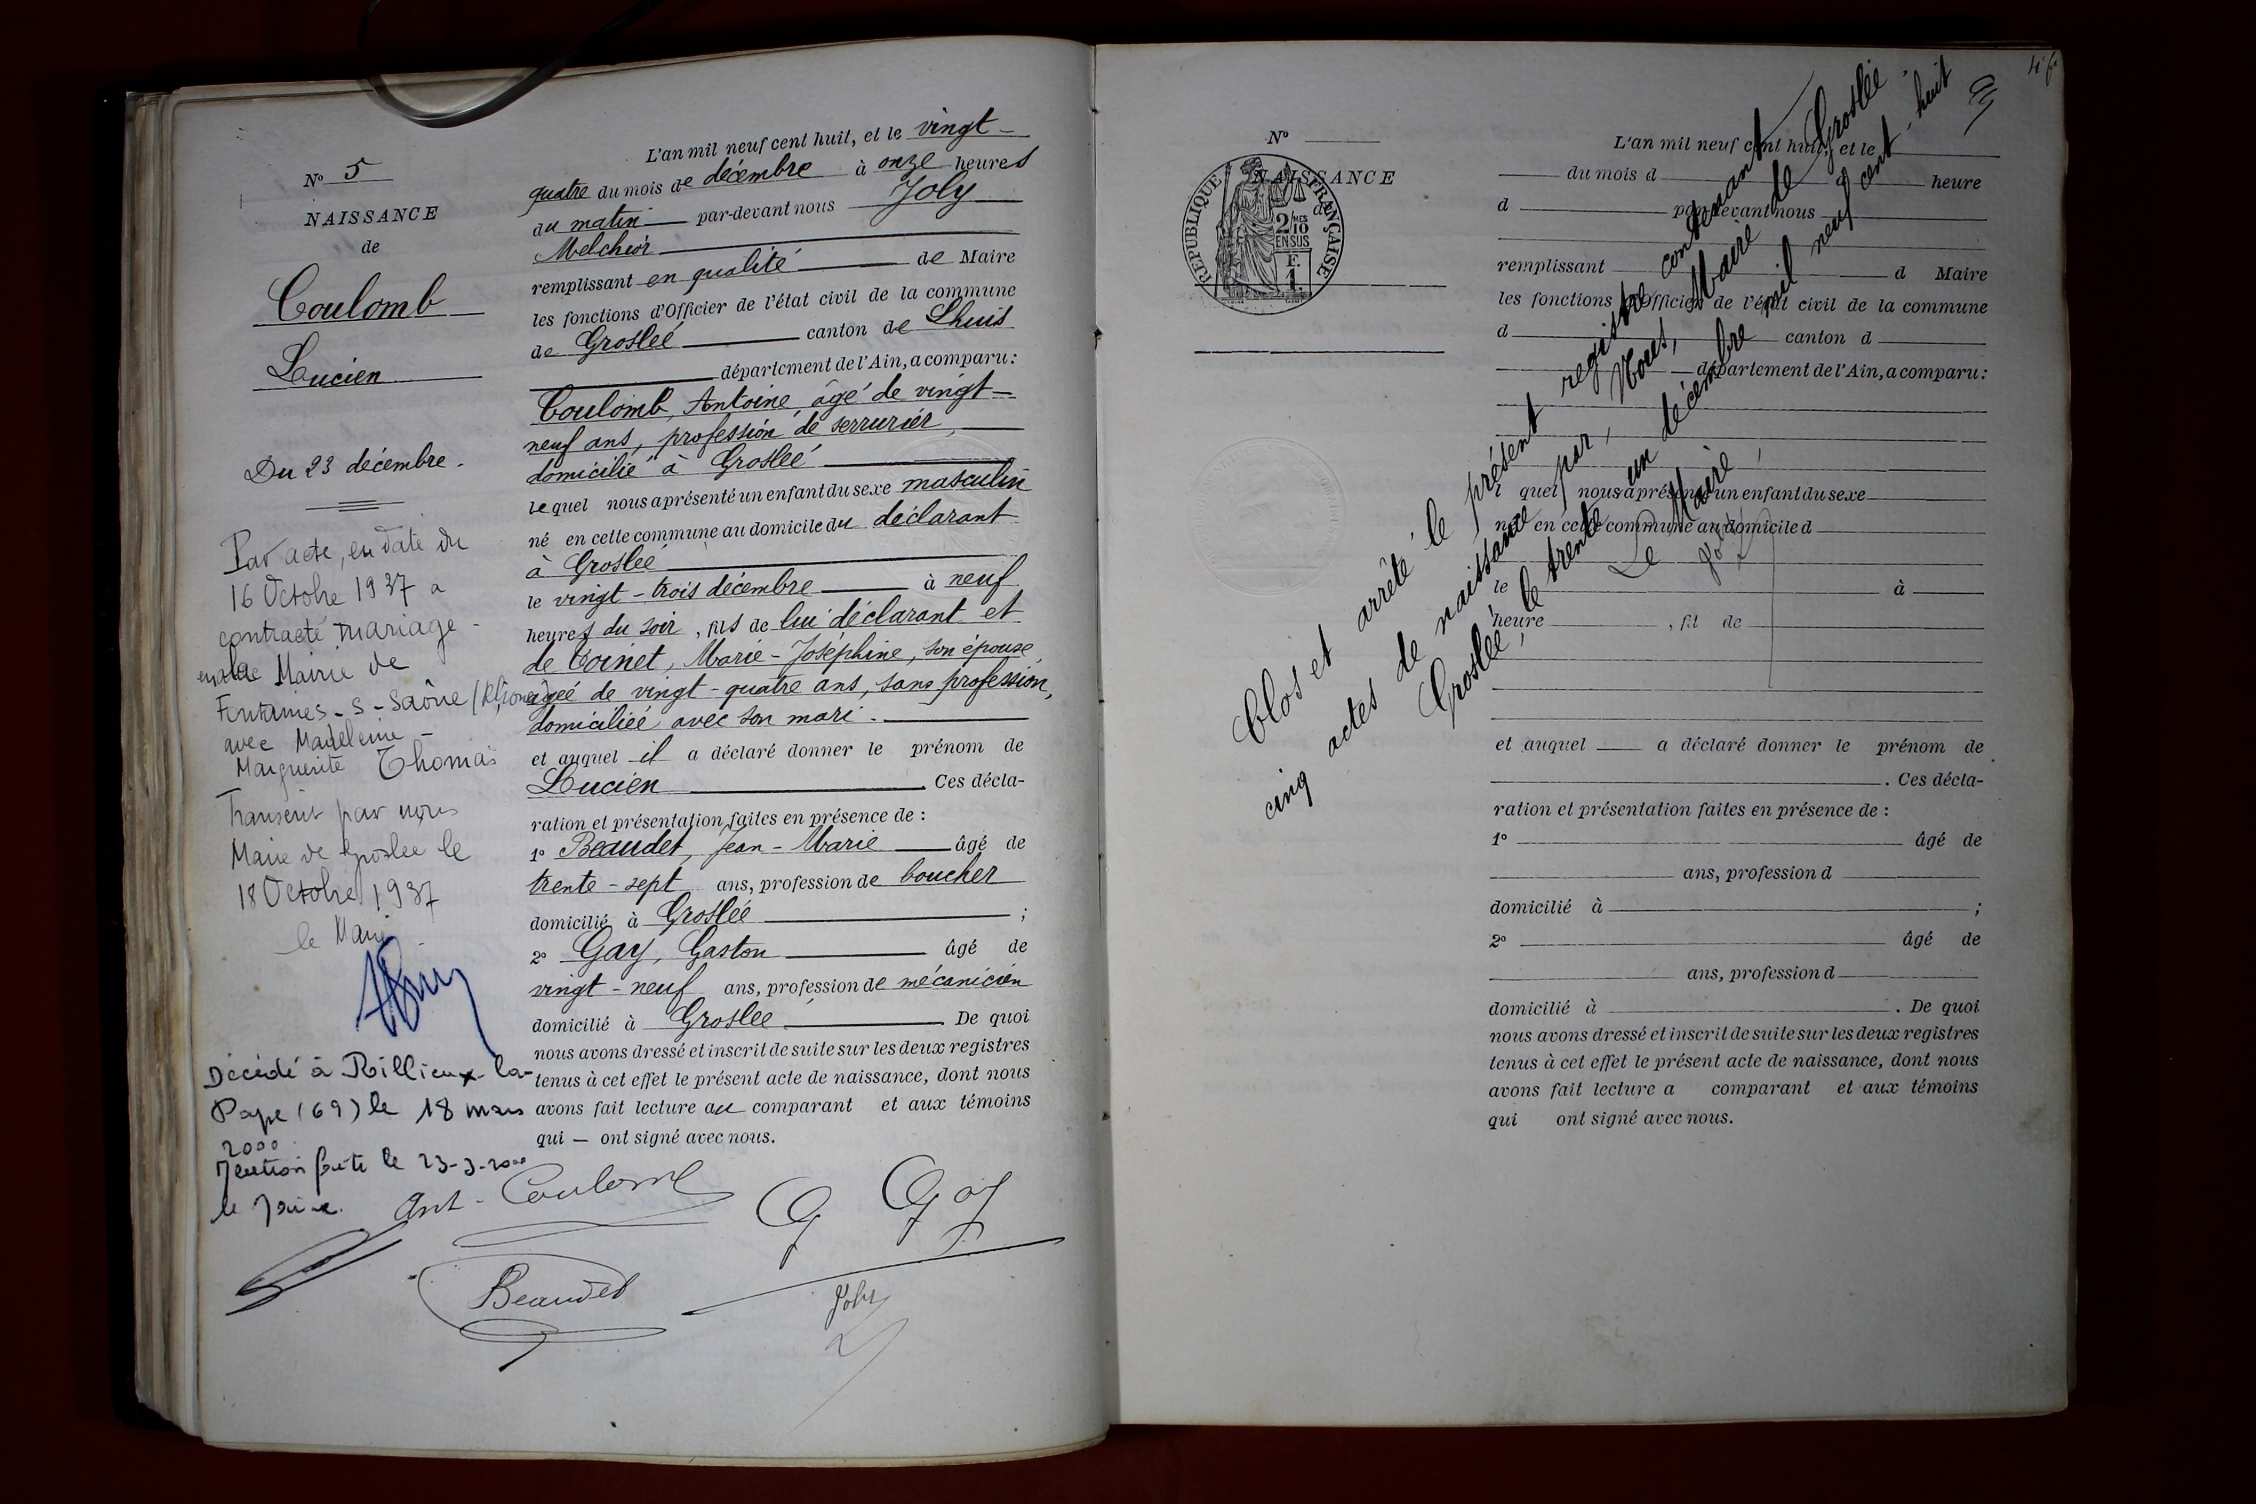 N° 5
NAISSANCE
de
Coulomb
Lucien
Du 23 décembre.
Par acte, en date du
16 Octobre 1937 a
contracté mariage
en la Mairie de
Fontaines-s-Saône (Rhône)
avec Madeleine
Marguerite Thomas
Transcrit par nous
Maire de Groslée le
18 Octobre 1937
le Maire
Décédé à Rillieux-la-
Pape (69) le 18 mars
2000
Mention faite le 23-3-2000
le Maire.
L'an mil neuf cent huit, et le vingt-
quatre du mois de décembre à onze heures
du matin par-devant nous Joly
Melchior
remplissant en qualité de Maire
les fonctions d'Officier de l'état civil de la commune
de Groslée canton de Lhuis
département de l'Ain, a comparu:
Coulomb, Antoine, âgé de vingt-
neuf ans, profession de serrurier,
domicilié à Groslée
lequel nous a présenté un enfant du sexe masculin
né en cette commune au domicile du déclarant
à Groslée
le vingt-trois décembre à neuf
heures du soir, fils de lui déclarant et
de Toinet, Marie-Joséphine, son épouse,
âgée de vingt-quatre ans, sans profession,
domiciliée avec son mari.
et auquel il a déclaré donner le prénom de
Lucien. Ces décla-
ration et présentation faites en présence de :
1° Beaudet, Jean-Marie âgé de
trente-sept ans, profession de boucher
domicilié à Groslée ;
2° Gay, Gaston âgé de
vingt-neuf ans, profession de mécanicien
domicilié à Groslée. De quoi
nous avons dressé et inscrit de suite sur les deux registres
tenus à cet effet le présent acte de naissance, dont nous
avons fait lecture au comparant et aux témoins
qui — ont signé avec nous.
Ant. Coulomb
G Gay
Beaudet
Joly
N°
NAISSANCE
de
RÉPUBLIQUE FRANÇAISE
2 MES
10
EN SUS
F.
1.
L'an mil neuf cent huit, et le
du mois d à heure
d par-devant nous
remplissant d Maire
les fonctions d'Officier de l'état civil de la commune
d canton d
département de l'Ain, a comparu:
l quel nous a présenté un enfant du sexe
n é en cette commune au domicile d
le à
heure , fil de
et auquel a déclaré donner le prénom de
. Ces décla-
ration et présentation faites en présence de :
1° âgé de
ans, profession d
domicilié à ;
2° âgé de
ans, profession d
domicilié à . De quoi
nous avons dressé et inscrit de suite sur les deux registres
tenus à cet effet le présent acte de naissance, dont nous
avons fait lecture a comparant et aux témoins
qui ont signé avec nous.
Clos et arrêté le présent registre contenant
cinq actes de naissance par, Nous, Maire de Groslée
Groslée, le trente un décembre mil neuf cent-huit
Le Maire,
Joly